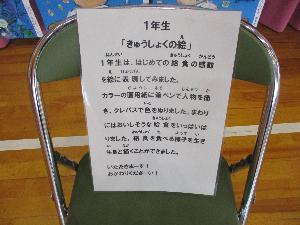 1年生
「きゅうしょくの絵」
1年生は、はじめての給食の感動
を絵に表現してみました。
カラーの画用紙に筆ペンで人物を描
き、クレパスで色をぬりました。まわり
にはおいしそうな給食をいっぱいは
りました。給食を食べる様子を生き
生きと描くことができました。
いただきまーす！
おかわりくださーい！